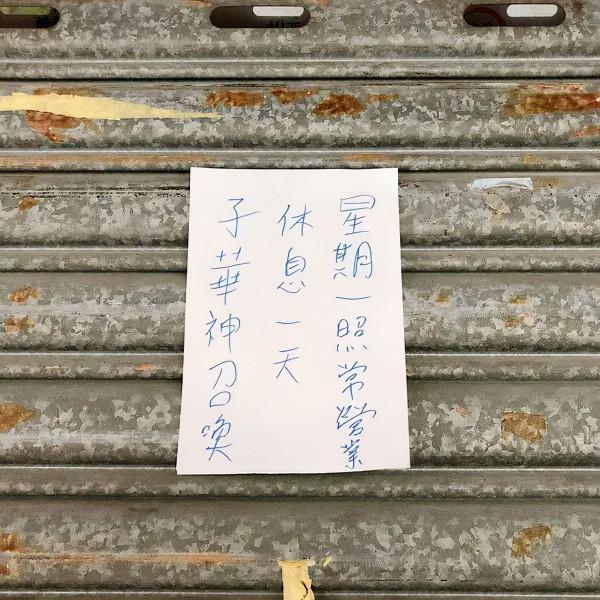 星期一照常營業
休息一天
子華神召喚